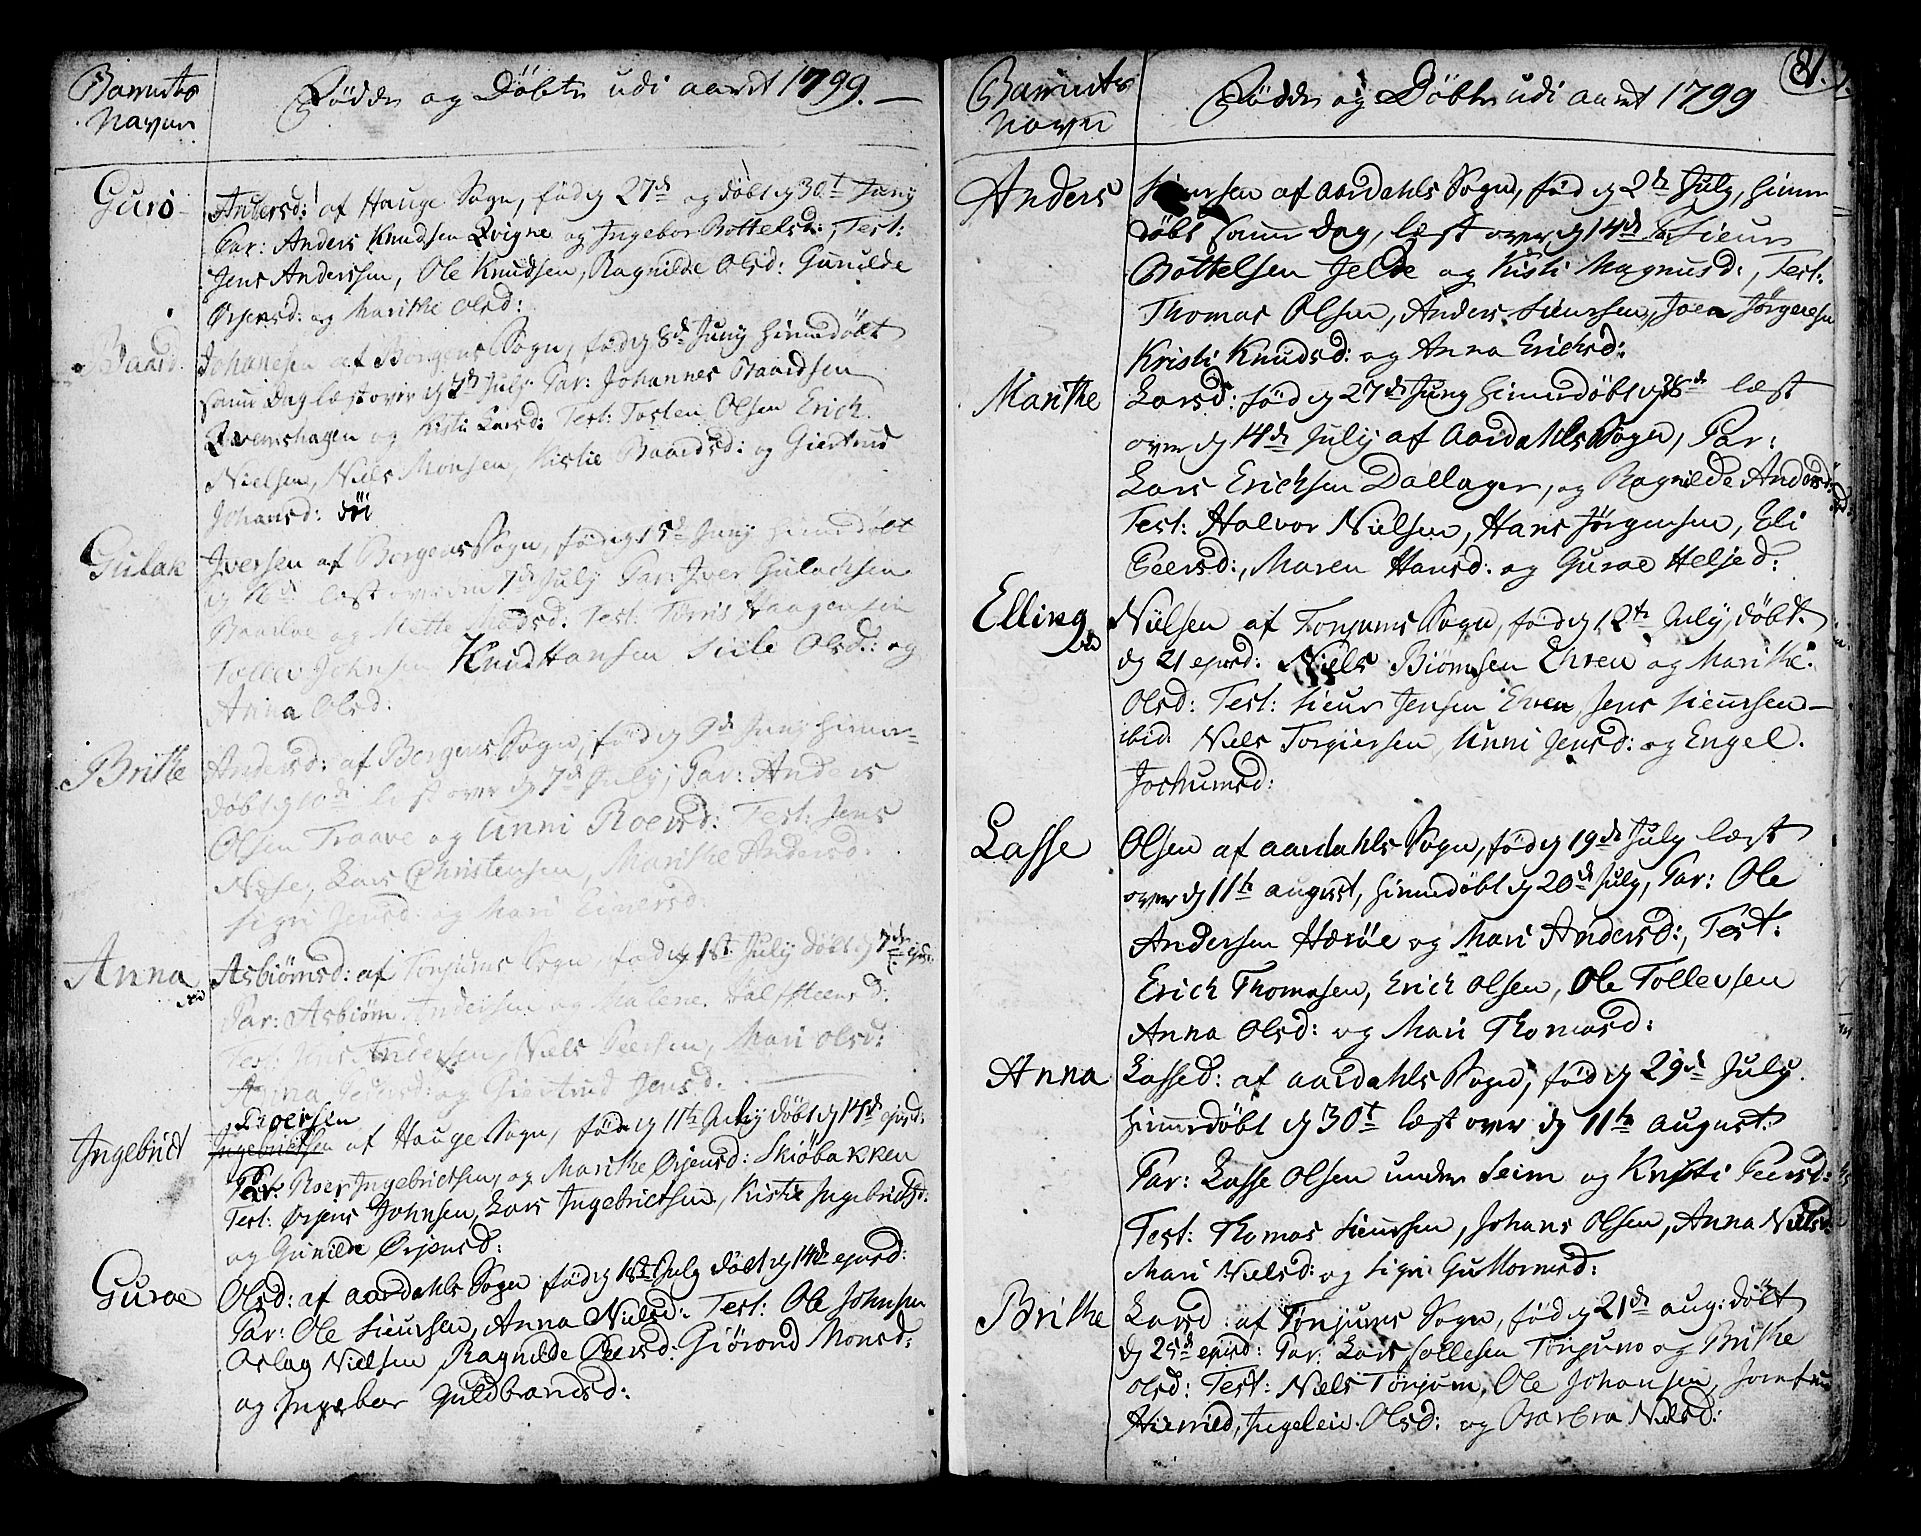 Barnets Navn
Fødde og Døbte udi aaret 1799. —
Guro
Andersd: af Hauge Sogn, fød ɖ 27de og døbt ɖ 30t Juny
Par: Anders Knudsen Qvigne og Ingebor Bottelsd:, Test:
Jens Andersen, Ole Knudsen, Ragnilde Olsd: Gunilde
Ørjensd: og Marithe Olsd:
Baard
Johanesen af Borgens Sogn, fød ɖ 8de Juny himedøbt
samme Dag læst over ɖ 7de July Par: Johannes Baardsen
Qvemshagen og Kisti Larsd: Test: Tosten Olsen Erich
Nielsen, Niels Monsen, Kistie Baardsd: og Giertrud
Johansd: döi
Gulak
Iversen af Borgens Sogn, fød ɖ 15de Juny himedøbt
ɖ 16de læst over den 7de July Par: Iver Gulachsen
og Mette Madsd. Test: Tørris Haagensen
Tollev Johnsen Knud Hansen Siile Olsd: og
Anna Olsd:
Brithe
Andersd: af Borgens Sogn, fød ɖ 9de Juny himme-
døbt ɖ 10de læst over ɖ 7de July, Par: Anders
Olsen Traave og Unni Roersd: Test: Jens
Næse, Lars Christensen, Marithe Andersd:
Sigri Jensd: og Mari Einersd:
Anna
Asbiörnsd: af Tonjums Sogn, fød ɖ 1st July døbt ɖ 7de ejusd:
Par: Asbiørn Andersen og Malene Halfsteensd:
Test: Jens Andersen, Niels Peersen, Mari Olsd:
Anna Peersd: og Giertrud Jensd.
Roersen
Ingebrict
Ingebrictsen af Hauge Sogn, fød ɖ 11te July døbt ɖ 14de ejusd:
Par: Roer Ingebrictsen, og Marithe Ørjensd: Skiøbakken
Test: Ørjens Johnsen, Lars Ingebrictsen, Kistie Ingebrictsd:
og Gunilde Ørjensd:
Guroe
Olsd: af Aardahls Sogn fød ɖ 1st July døbt ɖ 14de ejusd:
Par: Ole Siursen, Anna Nielsd: Test: Ole Johnsen
Aslag Nielsen Ragnilde Peersd. Giörond Monsd:
og Ingebor Guldbrandsd:
81.
Barnets Navn
Fødde og Døbte udi aaret 1799
Anders
Siursen af Aardahls Sogn, fød ɖ 2de July, himme
døbt samme Dag, læst over ɖ 14de Par: Siur
Bottelsen Jelde og Kisti Magnusd:, Test:
Thomas Olsen, Anders Siursen, Joen Jørgensen
Kristi Knudsd: og Anna Erichsd:
Marithe
Larsd: fød ɖ 27de Juny himmedøbt ɖ 28de læst
over ɖ 14de July af Aardahls Sogn, Par:
Lars Erichsen Dallager, og Ragnilde Andersd:
Test: Halvor Nielsen, Hans Jørgensen, Eli
Peersd:, Maren Hansd: og Guroe Heljed:
Elling
Nielsen af Tonjums Sogn, fød ɖ 12te July, døbt.
ɖ 21 ejusd: Niels Biørnsen Ehren og Marithe
Olsd: Test: Siur Jensen Eren, Jens Siursen —
ibid: Niels Torgiersen Unni Jensd: og Engel.
Jochumsd:
Lasse
Olsen af Aardahls Sogn, fød ɖ 19de July læst
over ɖ 11te august, himmedøbt ɖ 20de July, Par: Ole
Andersen Hærøe og Mari Andersd:, Test:
Erich Thomasen, Erich Olsen, Ole Tollevsen
Anna Olsd: og Mari Thomasd:
Anna
Lassed: af Aardahls Sogn, fød ɖ 29de July.
himmedøbt ɖ 30t læst over ɖ 11te august.
Par: Lasse Olsen under Seim og Kristi Peersd:
Test: Thomas Siursen, Johans Olsen, Anna Nielsd:
Mari Nielsd: og Sigri Guttormsd:
Brithe
Larsd: af Tønjums Sogn, fød ɖ 21de aug: døbt
ɖ 25de ejusd: Par: Lars Sollesen Tønjum og Brithe
Olsd: Test: Niels Tønjum, Ole Johansen,
Ingelei Olsd: og Barbra Nielsd: